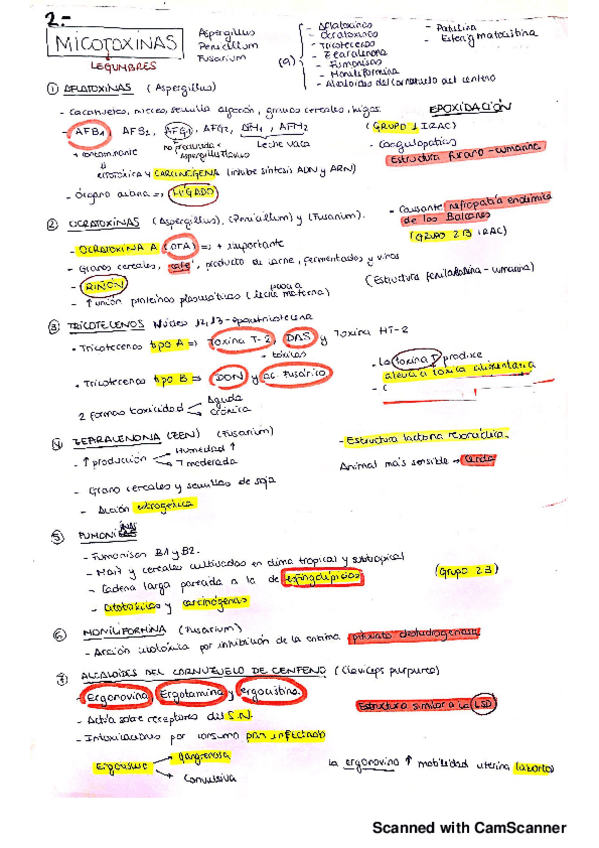 2.-
MICOTOXINAS
LEGUMBRES
Aspergillus
Penicillum
Fusarium
(9)
- Aflatoxinas
- Ocratoxinas
- Tricotecenos
- Zearalenona
- Fumonisinas
- Moniliformina
- Alcaloides del cornezuelo del centeno
- Patulina
- Esterigmatocistina
① AFLATOXINAS (Aspergillus)
- Cacahuetes, nueces, semilla algodón, granos cereales, higos.
EPOXIDACIÓN
- AFB1, AFB2, AFG1, AFG2, AFM1, AFM2
(GRUPO 1 IRAC)
+ contaminante
no producida x Aspergillus flavus
Leche vaca
- Coagulopatías
Estructura furano-cumarina
citotóxica y CARCINÓGENA (inhibe síntesis ADN y ARN)
- Órgano diana => HÍGADO
② OCRATOXINAS (Aspergillus), (Penicillum) y (Fusarium).
- Causante nefropatía endémica de los Balcanes
(GRUPO 2B IRAC)
- OCRATOXINA A (OTA) => + importante
- Granos cereales, café, producto de carne, fermentados y vinos
- RIÑÓN
(Estructura fenilalanina-cumarina)
- ↑ unión proteínas plasmáticas (leche materna)
③ TRICOTECENOS Núcleo 12,13-epoxitricoteceno
- Tricotecenos tipo A => Toxina T-2, DAS y Toxina HT-2
+ tóxicas
- La toxina T produce
aleucia tóxica alimentaria
- Tricotecenos tipo B => DON y ac. Fusárico.
2 formas toxicidad
Aguda
Crónica
④ ZEARALENONA (ZEN) (Fusarium)
- ↑ producción
Humedad ↑
T moderada
- Estructura lactona resorcíclica.
Animal más sensible → Cerdo
- Grano cereales y semillas de soja
- Acción estrogénica
⑤ FUMONISINAS
- Fumonisina B1 y B2.
- Maíz y cereales cultivados en clima tropical y subtropical
- Cadena larga parecida a la de esfingolípidos
(Grupo 2B)
- Citotóxicos y carcinógenas
⑥ MONILIFORMINA (Fusarium)
- Acción citotóxica por inhibición de la enzima piruvato deshidrogenasa
⑦ ALCALOIDES DEL CORNEZUELO DE CENTENO (Claviceps purpurea)
- Ergonovina, Ergotamina y ergocristina.
Estructura similar a la LSD
- Actúa sobre receptores del S.N.
- Intoxicaciones por consumo pan infectado
Ergotismo
gangrenosa
Convulsiva
la ergonovina ↑ mobilidad uterina (aborto)
Scanned with CamScanner